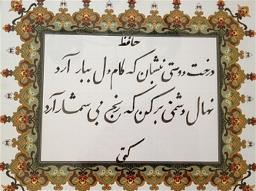 حافظ
درخت دوستی بنشان که کام دل ببار آرد
نهال دشمنی برکن که رنج بی شمار آرد